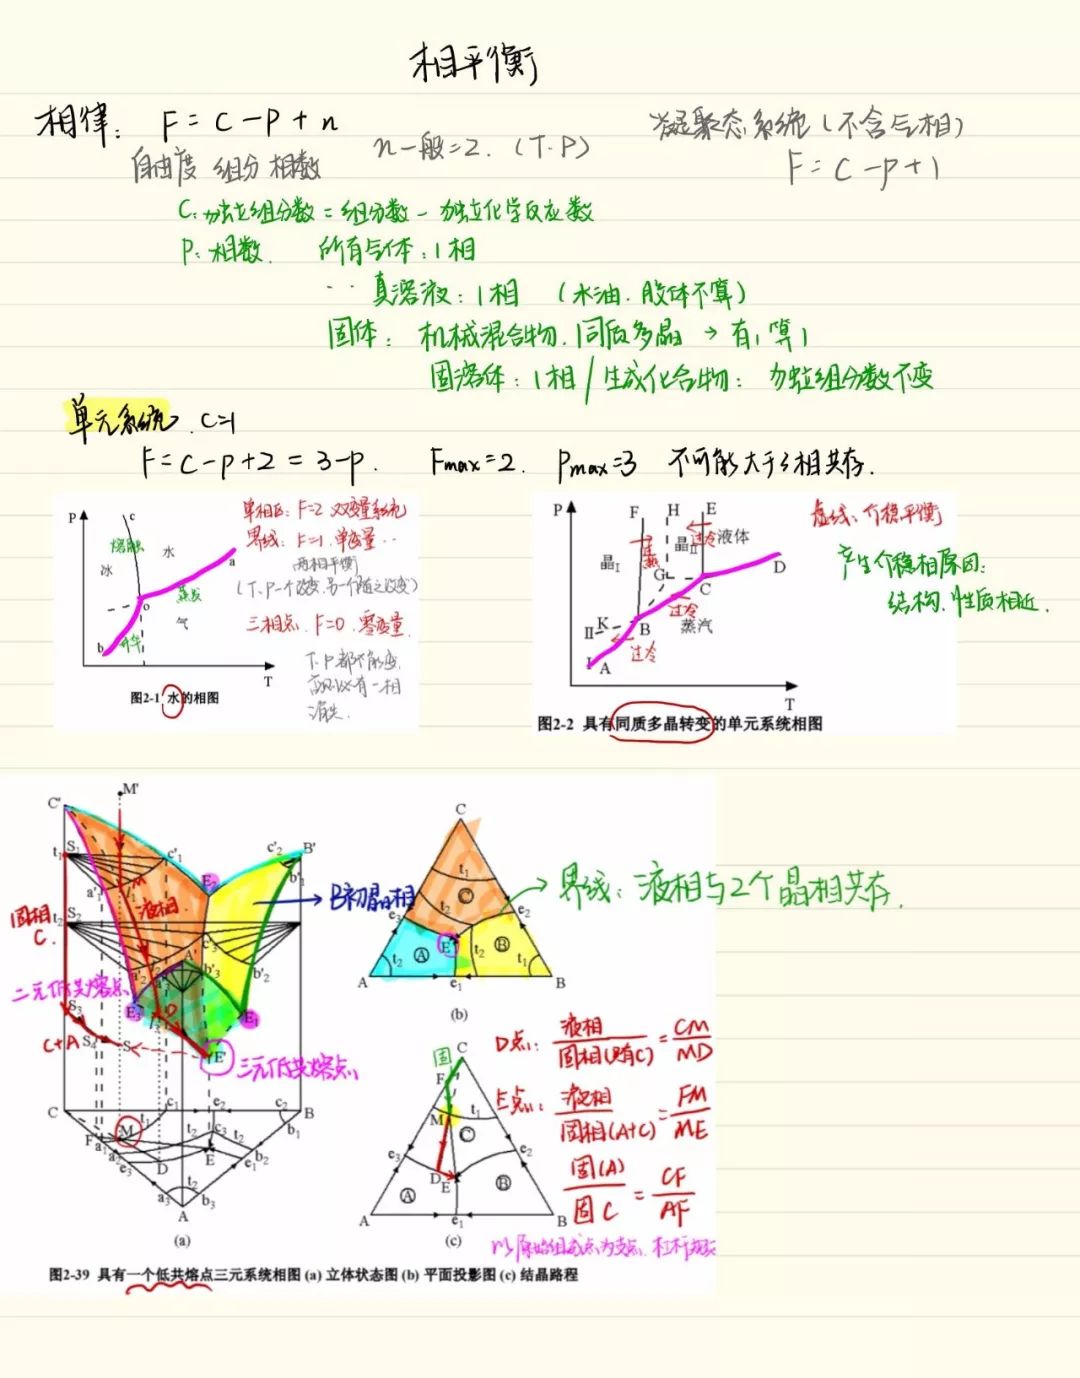 相平衡
相律： F = C - P + n
自由度 组分 相数
n一般=2. (T.P)
凝聚态系统(不含气相)
F = C - P + 1
C: 独立组分数 = 组分数 - 独立化学反应数
P: 相数. 所有气体：1相
真溶液：1相 (水油.胶体不算)
固体： 机械混合物.同质多晶 → 有1算1
固溶体：1相 / 生成化合物：独立组分数不变
单元系统. C=1
F = C - P + 2 = 3 - P. Fmax = 2. Pmax = 3 不可能大于3相共存.
P
c
熔融
水
冰
a
o
蒸发
气
b
升华
T
图2-1 水的相图
单相区：F=2 双变量系统
界线：F=1. 单变量..
两相平衡
(T、P一个改变.另一个随之改变)
三相点. F=0. 零变量
T.P都不能变.
否则必有一相
消失.
P
F H E
晶I
晶II
过热
过冷
液体
G
C
D
过冷
K
II
B
蒸汽
过冷
I
A
T
图2-2 具有同质多晶转变的单元系统相图
虚线：介稳平衡
产生介稳相原因：
结构.性质相近.
C'
M'
t1
S1
c'1
c'2
B'
b'1
a'1
E2
B初晶相
固相
C.
t2
S2
液相
c'3
A'
a'2
a'3
b'3
b'2
二元低共熔点
S3
E3
D'
E1
C+A
S4
S5
E'
三元低共熔点
C
M
t1
c1
e2
c2
B
F
a1
a2
e3
D
t2
c3
t2
E
e1
b2
b1
a3
t2
b3
A
(a)
C
t1
C
t2
e3
e2
E'
t2
A
t2
B
t1
A
e1
B
(b)
界线：液相与2个晶相共存.
固
C
F
M
t1
C
e3
e2
D
E
A
B
A
e1
B
(c)
D点：液相/固相(只有C) = CM/MD
E点：液相/固相(A+C) = FM/ME
固(A)/固C = CF/AF
以原始组成点为支点.杠杆规则
图2-39 具有一个低共熔点三元系统相图 (a) 立体状态图 (b) 平面投影图 (c) 结晶路程